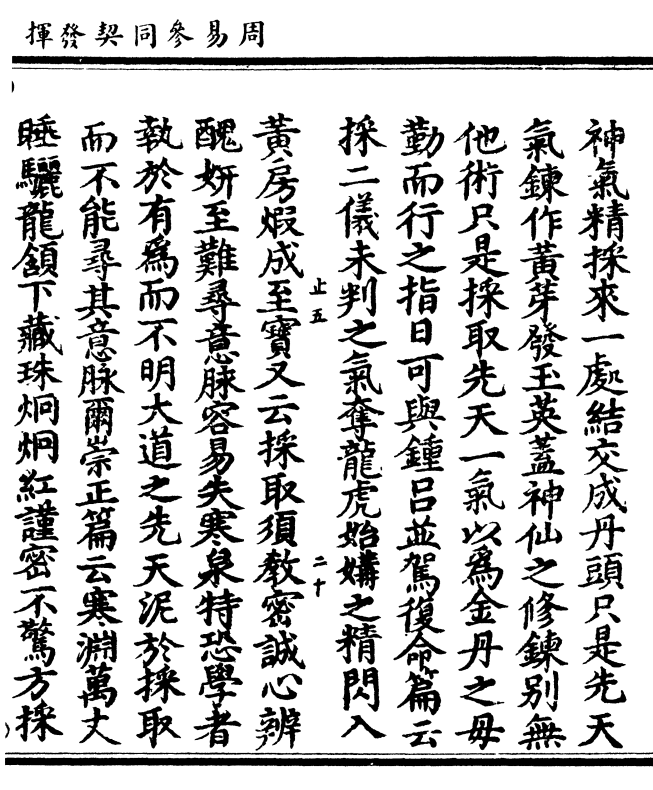 周易參同契發揮
神氣精採來一處結交成丹頭只是先天
氣鍊作黃芽發玉英蓋神仙之修鍊別無
他術只是採取先天一氣以爲金丹之毋
勤而行之指日可與鍾呂並駕復命篇云
採二儀未判之氣奪龍虎始媾之精閃入
黃房煅成至寶又云採取須教密誠心辨
醜妍至難尋意脉容易失寒泉特恐學者
執於有爲而不明大道之先天泥於採取
而不能尋其意脉爾崇正篇云寒淵萬丈
睡驪龍頷下藏珠炯炯紅謹密不驚方採
止五
二十